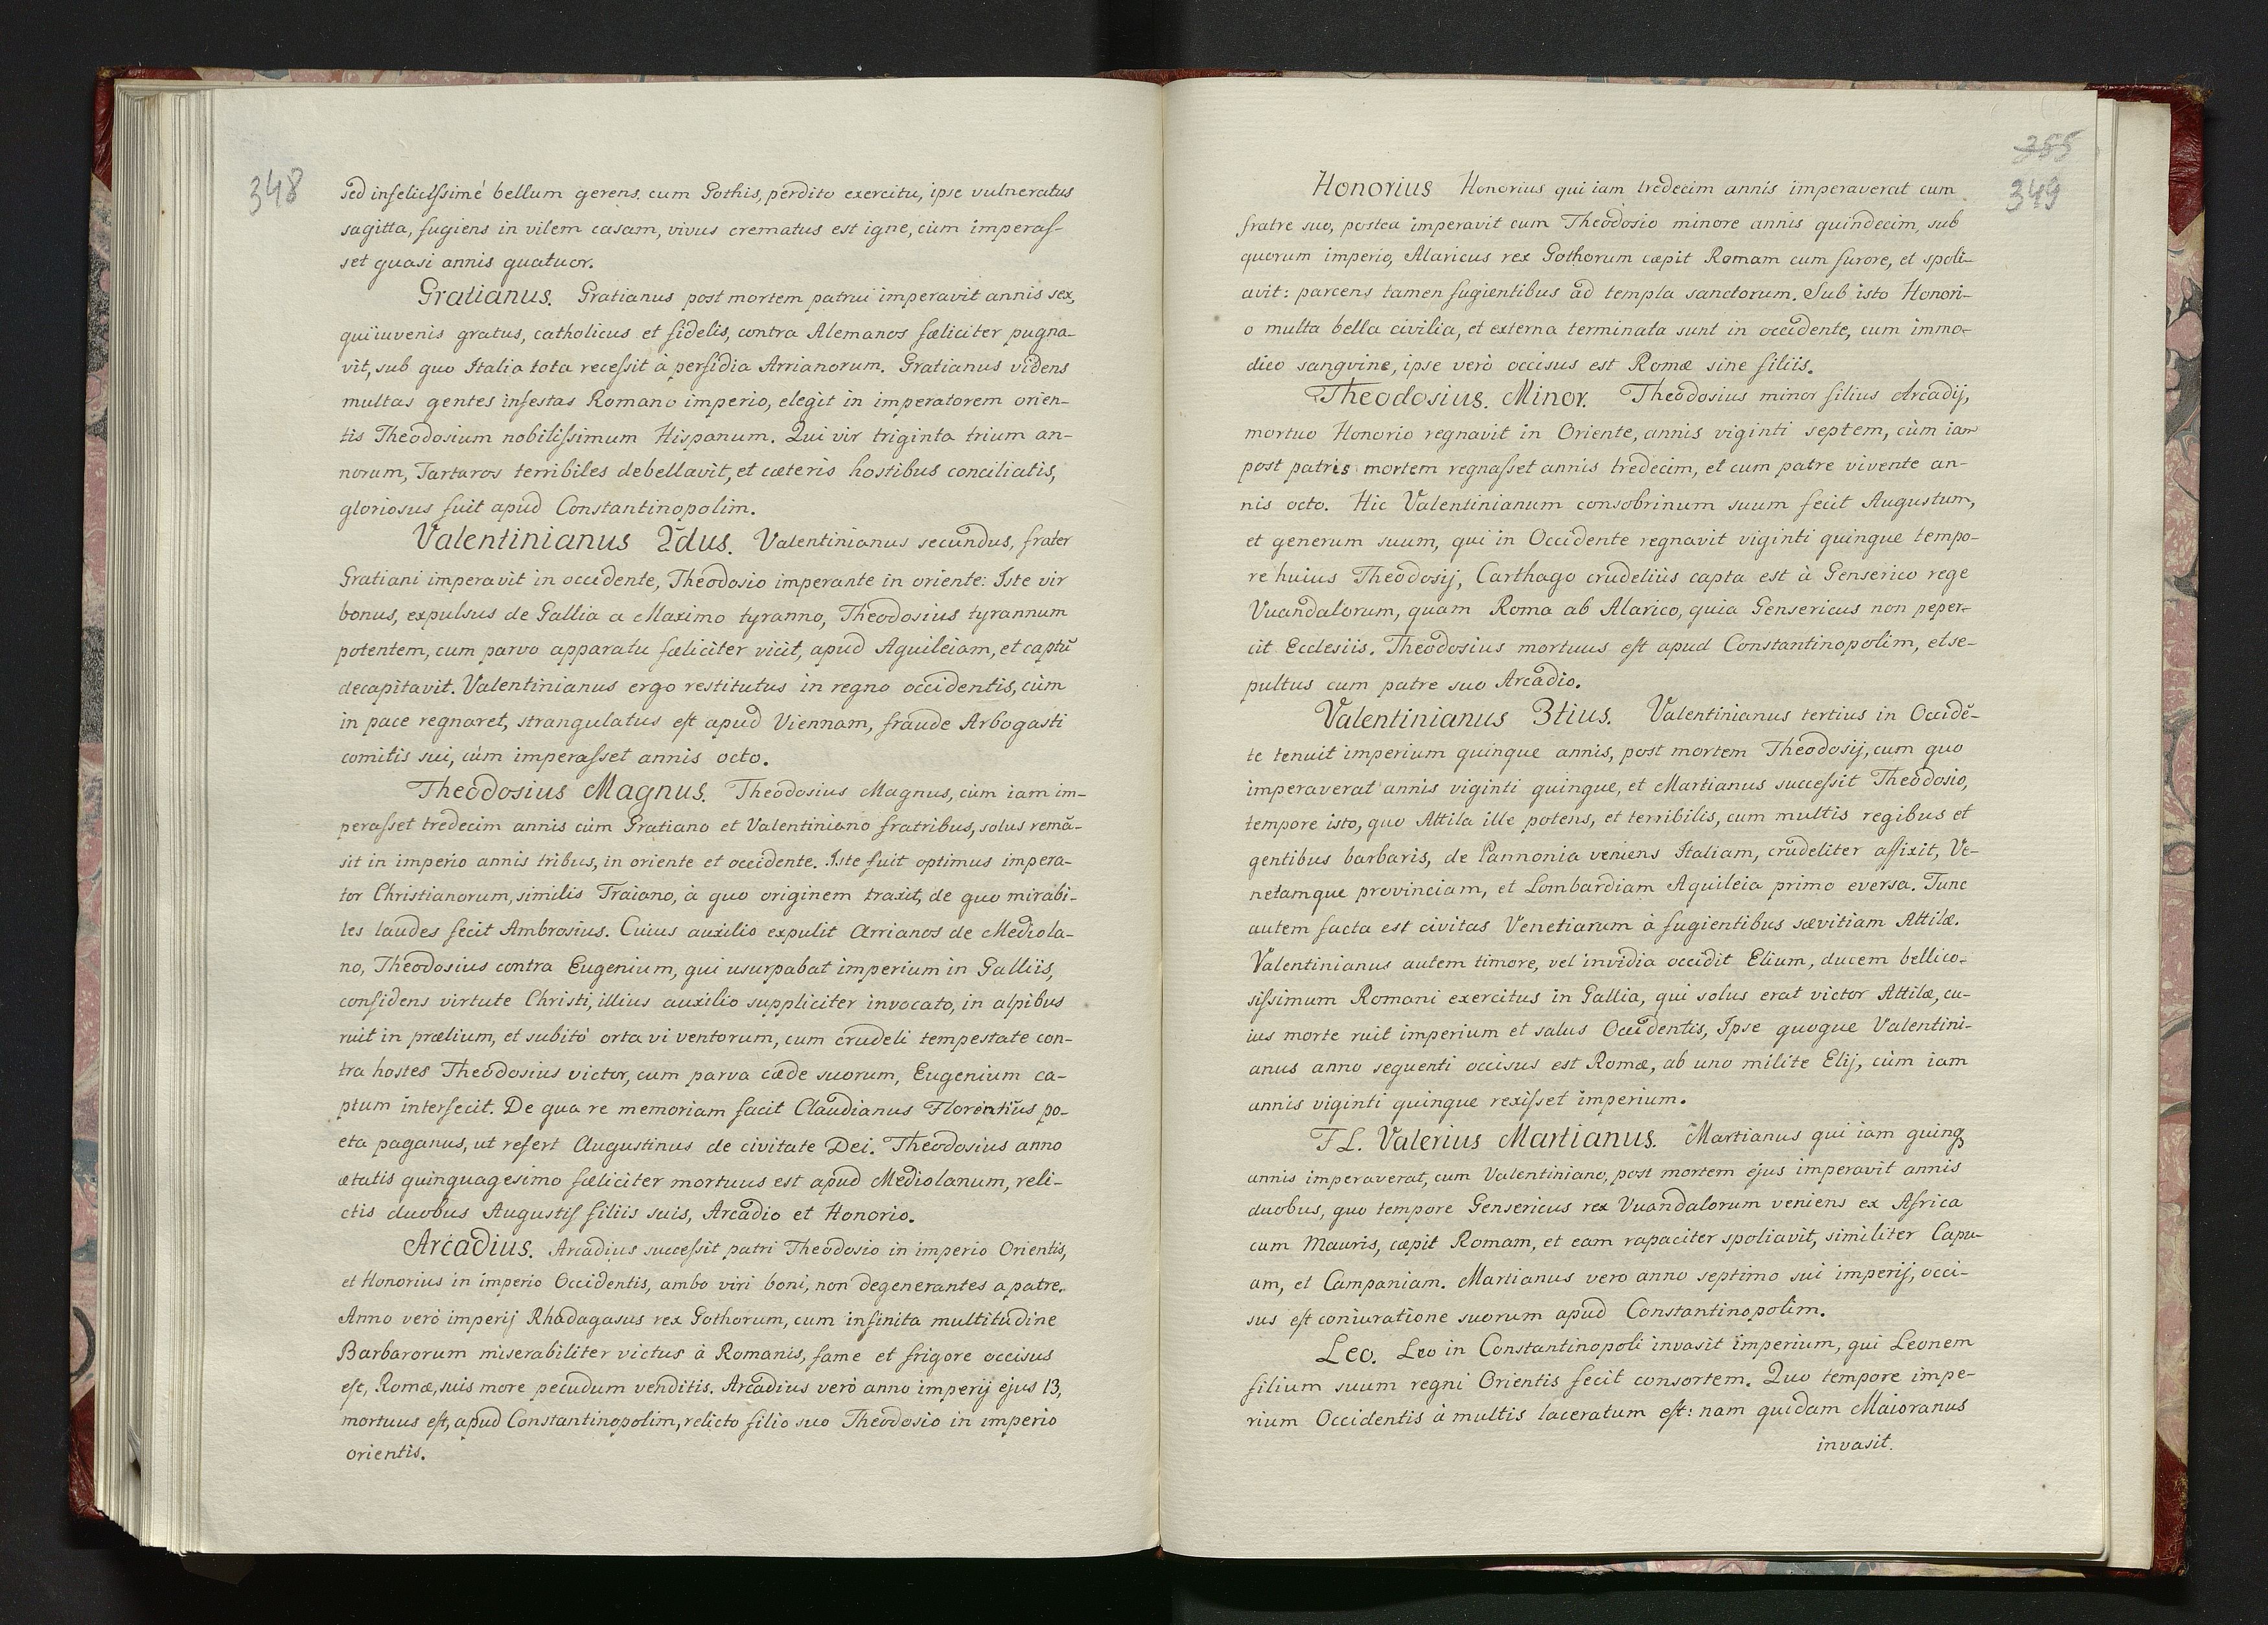 348
sed infelicissimè bellum gerens cum Gothis, perdito exercitu, ipse vulneratus
sagitta, fugiens in vilem casam, vivus crematus est igne, cùm imperas-
set quasi annis quatuor.
Gratianus. Gratianus post mortem patrui imperavit annis sex,
qui iuvenis gratus, catholicus et fidelis, contra Alemanos fæliciter pugna-
vit, sub quo Italia tota recessit à perfidia Arrianorum. Gratianus videns
multas gentes infestas Romano imperio, elegit in imperatorem orien-
tis Theodosium nobilissimum Hispanum. Qui vir triginta trium an-
norum, Tartaros terribiles debellavit, et cæteris hostibus conciliatis,
gloriosus fuit apud Constantinopolim.
Valentinianus 2dus. Valentinianus secundus, frater
Gratiani imperavit in occidente, Theodosio imperante in oriente: Iste vir
bonus, expulsus de Gallia a Maximo tyranno, Theodosius tyrannum
potentem, cum parvo apparatu fæliciter vicit, apud Aquileiam, et captũ
decapitavit. Valentinianus ergo restitutus in regno occidentis, cùm
in pace regnaret, strangulatus est apud Viennam, fraude Arbogasti
comitis sui, cùm imperasset annis octo.
Theodosius Magnus. Theodosius Magnus, cùm iam im-
perasset tredecim annis cùm Gratiano et Valentiniano fratribus, solus remã-
sit in imperio annis tribus, in oriente et occidente. Iste fuit optimus impera-
tor Christianorum, similis Traiano, à quo originem traxit, de quo mirabi-
les laudes fecit Ambrosius. Cuius auxilio expulit Arrianos de Mediola-
no, Theodosius contra Eugenium, qui usurpabat imperium in Galliis,
confidens virtute Christi, illius auxilio suppliciter invocato, in alpibus
ruit in prælium, et subitò orta vi ventorum, cum crudeli tempestate con-
tra hostes Theodosius victor, cum parva cæde suorum, Eugenium ca-
ptum interfecit. De qua re memoriam facit Claudianus Florentius po-
eta paganus, ut refert Augustinus de civitate Dei. Theodosius anno
ætatis quinquagesimo fæliciter mortuus est apud Mediolanum, reli-
ctis duobus Augustis filiis suis, Arcadio et Honorio.
Arcadius. Arcadius successit patri Theodosio in imperio Orientis,
et Honorius in imperio Occidentis, ambo viri boni, non degenerantes a patre.
Anno verò imperij Rhadagasus rex Gothorum, cum infinita multitudine
Barbarorum miserabiliter victus à Romanis, fame et frigore occisus
est, Romæ, suis more pecudum venditis. Arcadius verò anno imperij ejus 13,
mortuus est, apud Constantinopolim, relicto filio suo Theodosio in imperio
orientis.
355
349
Honorius Honorius qui iam tredecim annis imperaverat cum
fratre suo, postea imperavit cum Theodosio minore annis quindecim, sub
quorum imperio, Alaricus rex Gothorum cæpit Romam cum furore, et spoli-
avit: parcens tamen fugientibus ad templa sanctorum. Sub isto Honori-
o multa bella civilia, et externa terminata sunt in occidente, cum immo-
dico sangvine, ipse verò occisus est Romæ sine filiis.
Theodosius. Minor. Theodosius minor filius Arcadij,
mortuo Honorio regnavit in Oriente, annis viginti septem, cùm iam
post patris mortem regnasset annis tredecim, et cum patre vivente an-
nis octo. Hic Valentinianum consobrinum suum fecit Augustum,
et generum suum, qui in Occidente regnavit viginti quinque tempo-
re huius Theodosij, Carthago crudeliùs capta est à Genserico rege
Vuandalorum, quam Roma ab Alarico, quia Gensericus non peper-
cit Ecclesiis. Theodosius mortuus est apud Constantinopolim, et se-
pultus cum patre suo Arcadio.
Valentinianus 3tius. Valentinianus tertius in Occidẽ-
te tenuit imperium quinque annis, post mortem Theodosij, cum quo
imperaverat annis viginti quinque, et Martianus successit Theodosio,
tempore isto, quo Attila ille potens, et terribilis, cum multis regibus et
gentibus barbaris, de Pannonia veniens Italiam, crudeliter affixit, Ve-
netamque provinciam, et Lombardiam Aquileia primo eversa. Tunc
autem facta est civitas Venetiarum à fugientibus sævitiam Attilæ.
Valentinianus autem timore, vel invidia occidit Elium, ducem bellico-
sissimum Romani exercitus in Gallia, qui solus erat victor Attilæ, cu-
ius morte ruit imperium et salus Occidentis, Ipse quoque Valentini-
anus anno sequenti occisus est Romæ, ab uno milite Elij, cùm iam
annis viginti quinque rexisset imperium.
FL. Valerius Martianus. Martianus qui iam quinq
annis imperaverat, cum Valentiniano, post mortem ejus imperavit annis
duobus, quo tempore Gensericus rex Vuandalorum veniens ex Africa
cum Mauris, cæpit Romam, et eam rapaciter spoliavit, similiter Capu-
am, et Campaniam. Martianus vero anno septimo sui imperij, occi-
sus est coniuratione suorum apud Constantinopolim.
Leo. Leo in Constantinopoli invasit imperium, qui Leonem
filium suum regni Orientis fecit consortem. Quo tempore impe-
rium Occidentis à multis laceratum est: nam quidam Maioranus
invasit.